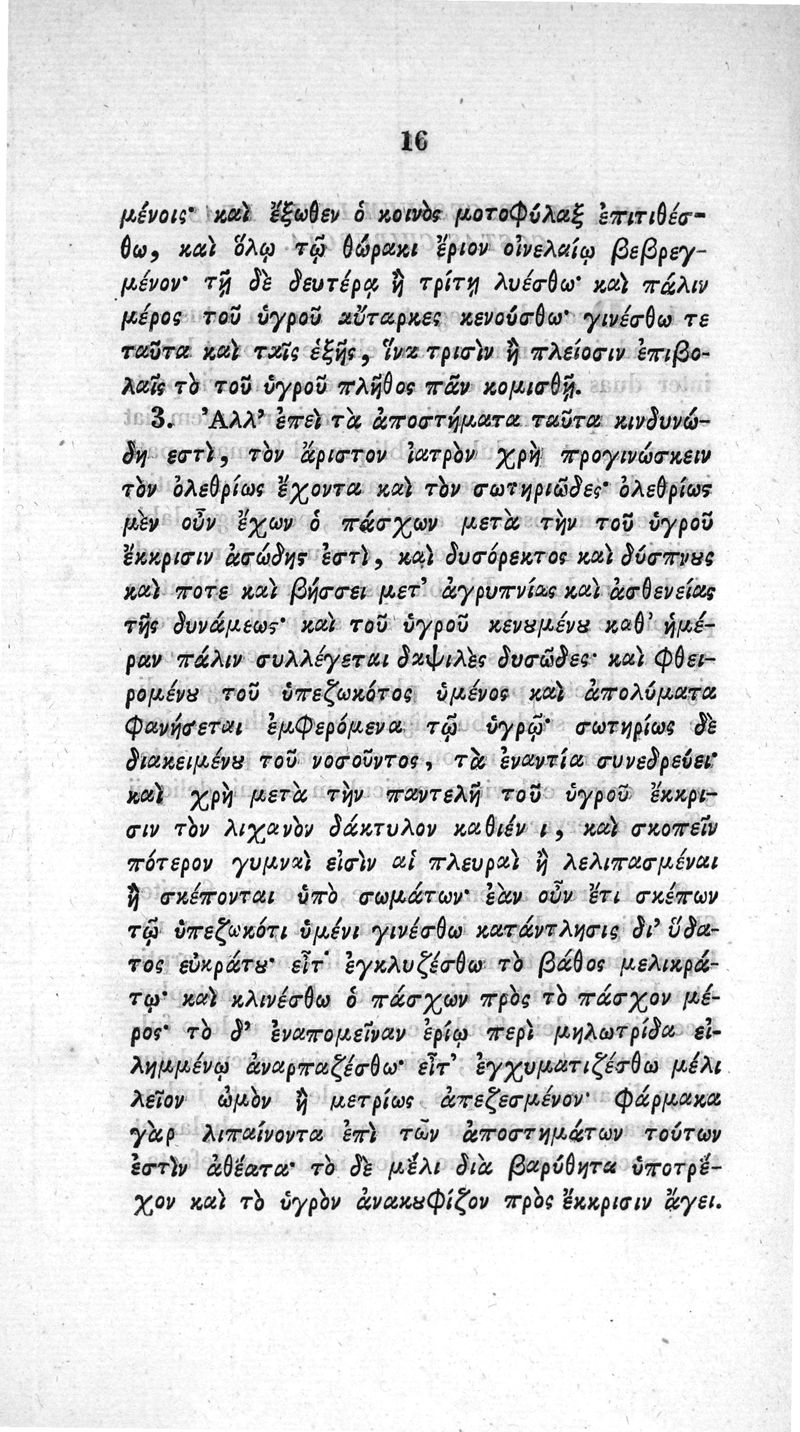 16
μένοις· καὶ ἔξωθεν ὁ κοινὸς μοτοφύλαξ ἐπιτιθέσ-
θω, καὶ ὅλῳ τῷ θώρακι ἔριον οἰνελαίῳ βεβρεγ-
μένον· τῇ δὲ δευτέρᾳ ἢ τρίτῃ λυέσθω· καὶ πάλιν
μέρος τοῦ ὑγροῦ αὔταρκες κενούσθω· γινέσθω τε
ταῦτα καὶ ταῖς ἑξῆς, ἵνα τρισὶν ἢ πλείοσιν ἐπιβο-
λαῖς τὸ τοῦ ὑγροῦ πλῆθος πᾶν κομισθῇ.
3. Ἀλλ’ ἐπεὶ τὰ ἀποστήματα ταῦτα κινδυνώ-
δη εστὶ, τὸν ἄριστον ἰατρὸν χρὴ προγινώσκειν
τὸν ὀλεθρίως ἔχοντα καὶ τὸν σωτηριῶδες· ὀλεθρίως
μὲν οὖν ἔχων ὁ πάσχων μετὰ τὴν τοῦ ὑγροῦ
ἔκκρισιν ἀσώδης ἐστὶ, καὶ δυσόρεκτος καὶ δύσπνȣς
καὶ ποτε καὶ βήσσει μετ’ ἀγρυπνίας καὶ ἀσθενείας
τῆς δυνάμεως· καὶ τοῦ ὑγροῦ κενȣμένȣ καθ’ ἡμέ-
ραν πάλιν συλλέγεται δαψιλὲς δυσῶδες· καὶ φθει-
ρομένȣ τοῦ ὑπεζωκότος ὑμένος καὶ ἀπολύματα
φανήσεται ἐμφερόμενα τῷ ὑγρῷ· σωτηρίως δὲ
διακειμένȣ τοῦ νοσοῦντος, τὰ ἐναντία συνεδρεύει·
καὶ χρὴ μετὰ τὴν παντελῆ τοῦ ὑγροῦ ἔκκρι-
σιν τὸν λιχανὸν δάκτυλον καθιέν ι, καὶ σκοπεῖν
πότερον γυμναὶ εἰσὶν αἱ πλευραὶ ἢ λελιπασμέναι
ἢ σκέπονται ὑπὸ σωμάτων· ἐὰν οὖν ἔτι σκέπων
τῷ ὑπεζωκότι ὑμένι γινέσθω κατάντλησις δι’ ὕδα-
τος εὐκράτȣ· εἶτ’ ἐγκλυζέσθω τὸ βάθος μελικρά-
τῳ· καὶ κλινέσθω ὁ πάσχων πρὸς τὸ πάσχον μέ-
ρος· τὸ δ’ ἐναπομεῖναν ἐρίῳ περὶ μηλωτρίδα εἰ-
λημμένῳ ἀναρπαζέσθω· εἶτ’ ἐγχυματιζέσθω μέλι
λεῖον ὠμὸν ἢ μετρίως ἀπεζεσμένον· φάρμακα
γὰρ λιπαίνοντα ἐπὶ τῶν ἀποστημάτων τούτων
ἐστὶν ἀθέατα· τὸ δὲ μέλι διὰ βαρύθητα ὑποτρέ-
χον καὶ τὸ ὑγρὸν ἀνακȣφίζον πρὸς ἔκκρισιν ἄγει.